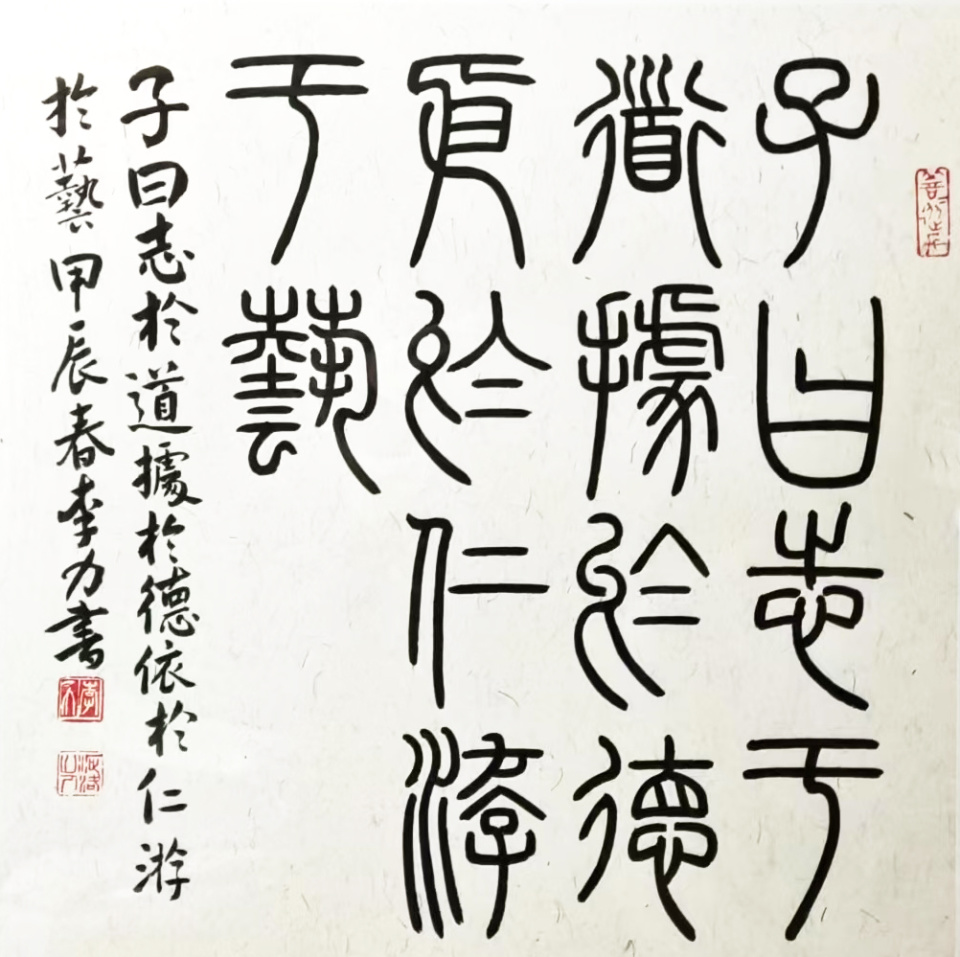 子曰志于
道據於德
依於仁游
于藝
子曰志於道據於德依於仁游
於藝甲辰春李力書
李力